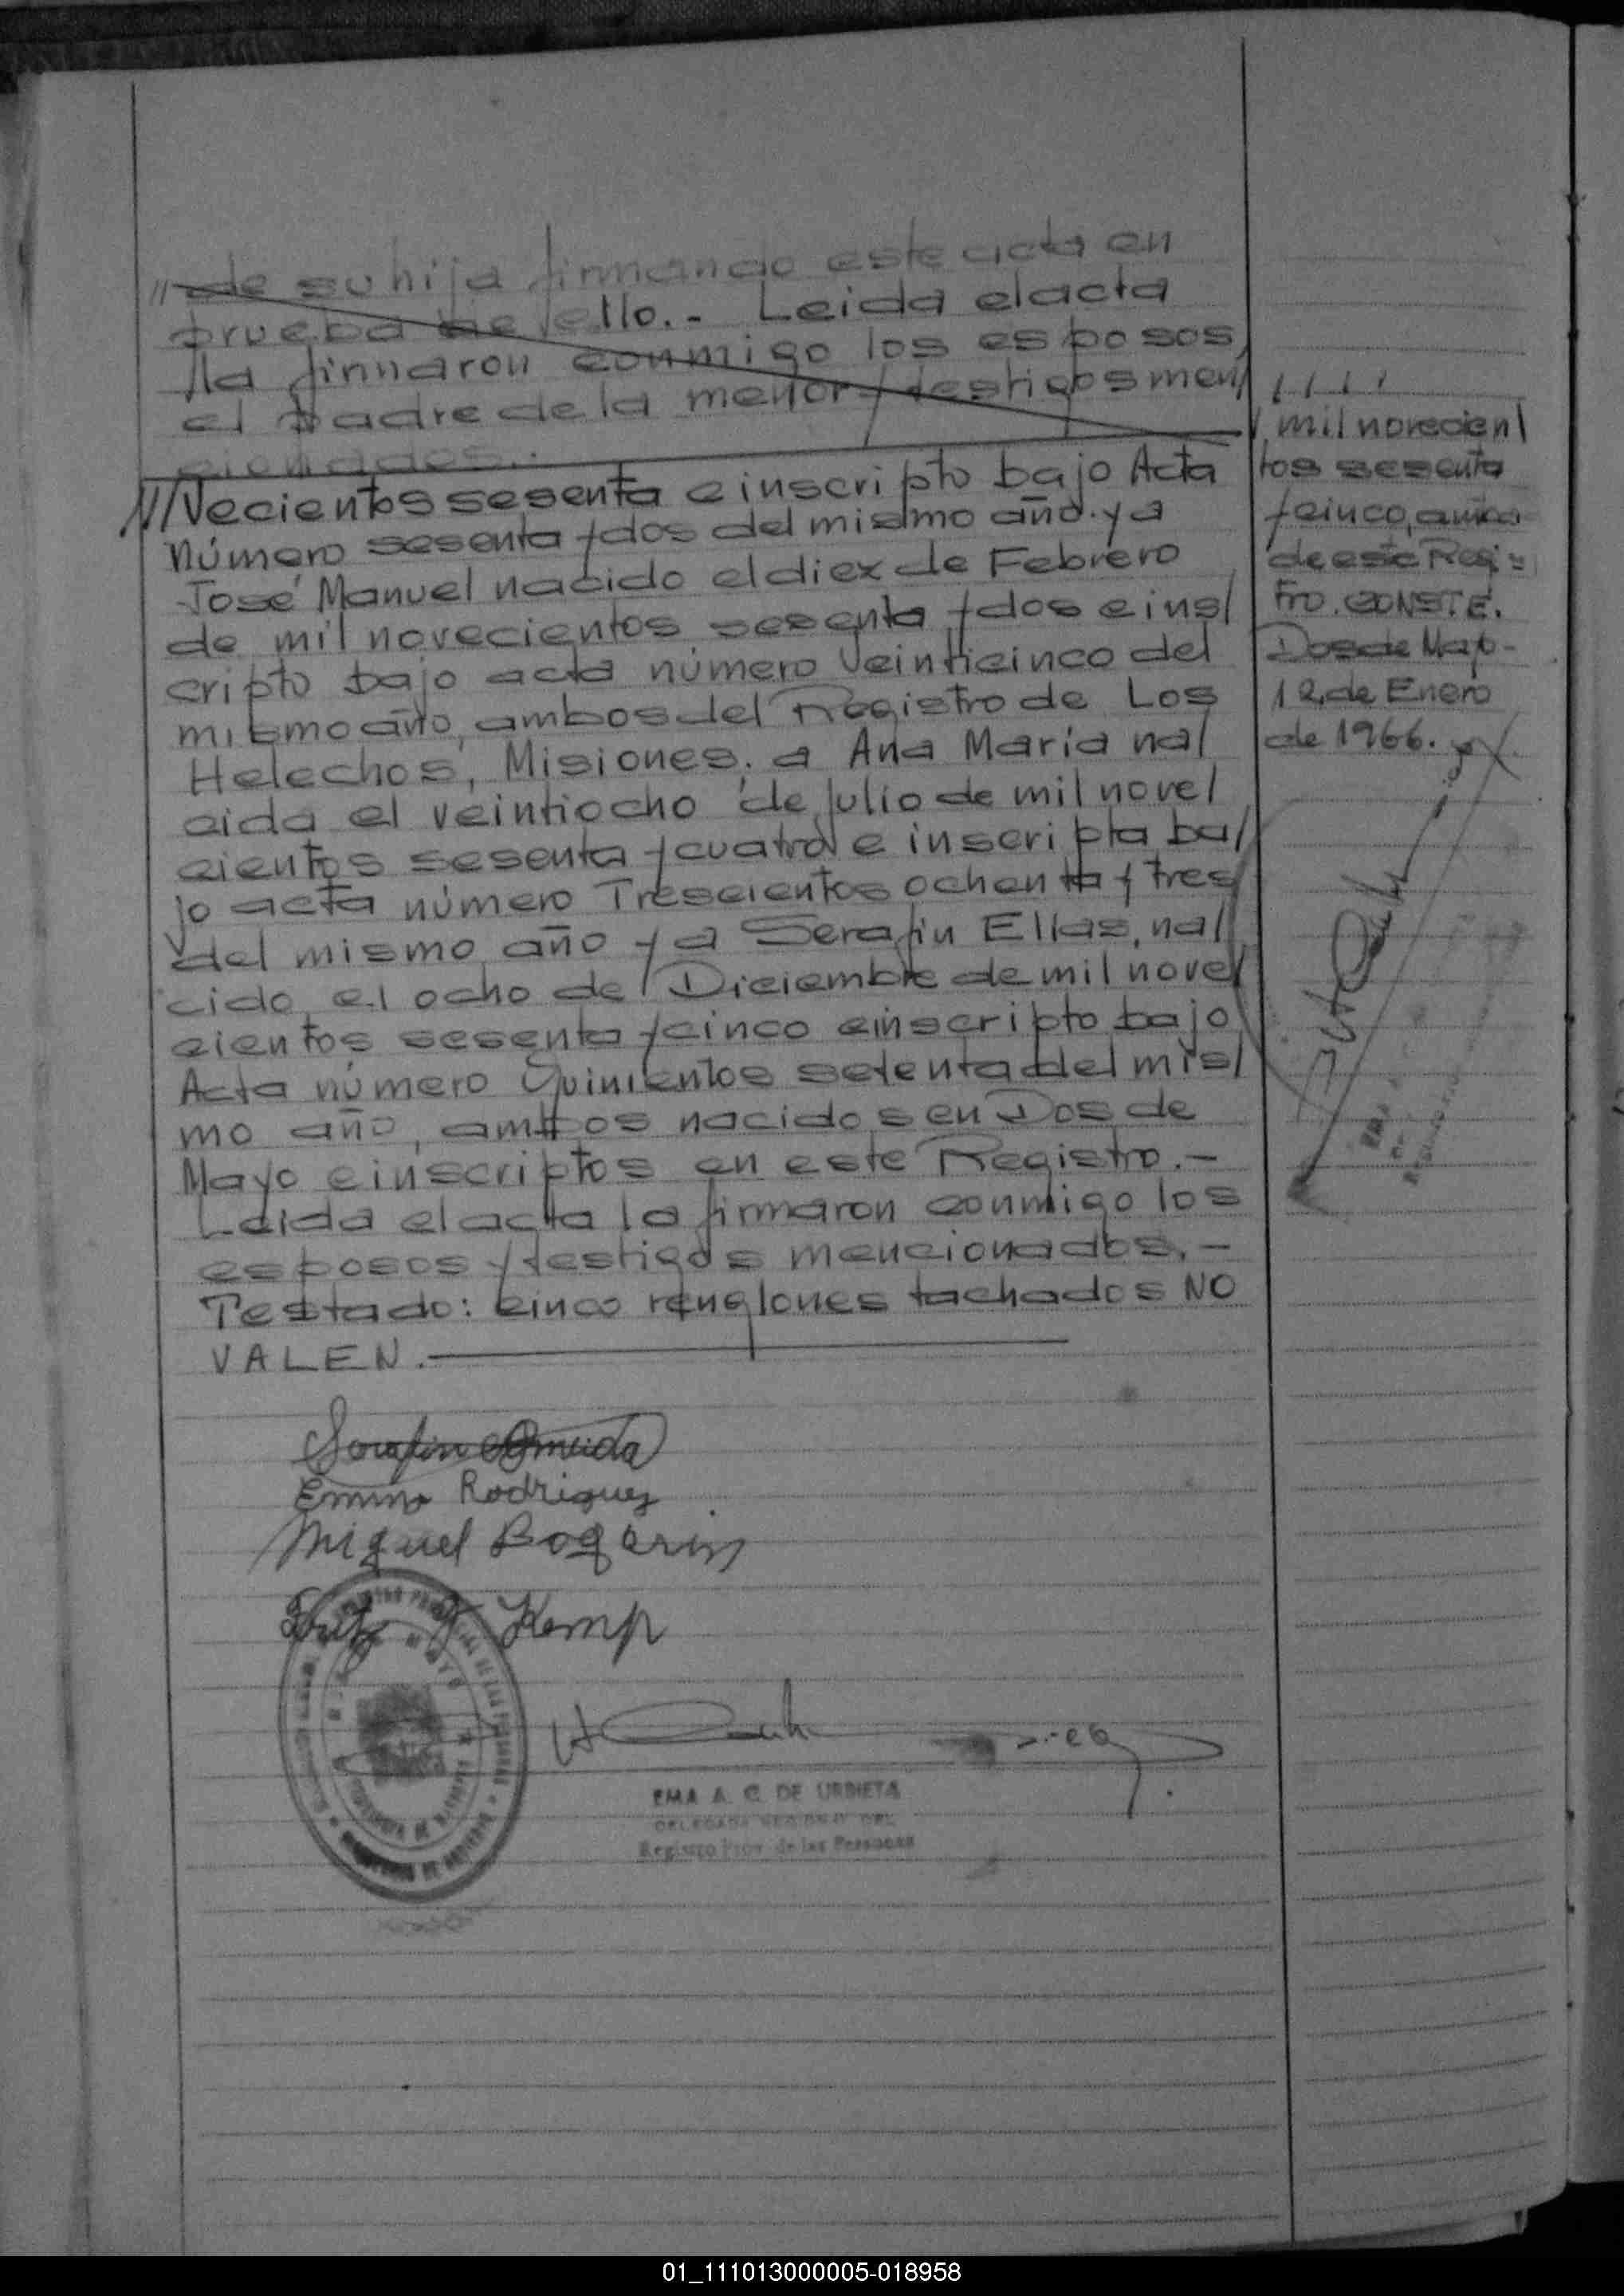 // de su hija firmando este acta en
prueba de ello.- Leida el acta
la firmaron conmigo los esposos,
el padre de la menor y testigos men/
cionados.-
///Vecientos sesenta e inscripto bajo Acta
Número sesenta y dos del mismo año. y a
José Manuel nacido el diez de Febrero
de mil novecientos sesenta y dos e ins/
cripto bajo acta número Veinticinco del
mismo año, ambos del Registro de Los
Helechos, Misiones. a Ana María na/
cida el veintiocho de Julio de mil nove/
cientos sesenta y cuatro e inscripta ba/
jo acta número Trescientos ochenta y tres
del mismo año y a Serafin Elias, na/
cido el ocho de Diciembre de mil nove/
cientos sesenta y cinco e inscripto bajo
Acta número Quinientos setenta del mis/
mo año, ambos nacidos en Dos de
Mayo e inscriptos en este Registro.-
Leida el acta la firmaron conmigo los
esposos y testigos mencionados.-
Testado: cinco renglones tachados NO
VALEN.
Serafin Almeida
Emma Rodriguez
Miguel Bogarin
Fritz Kemp
EMA A. C. DE URBIETA
DELEGADA REGIONAL DEL
Registro Prov. de las Personas
/ / / /
mil novecien/
tos sesenta
y cinco,
de este Regis=
tro. CONSTE.
Dos de Mayo-
12 de Enero
de 1966.
01_111013000005-018958